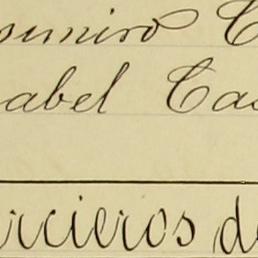 simiro C
abel Ca
rcieros de